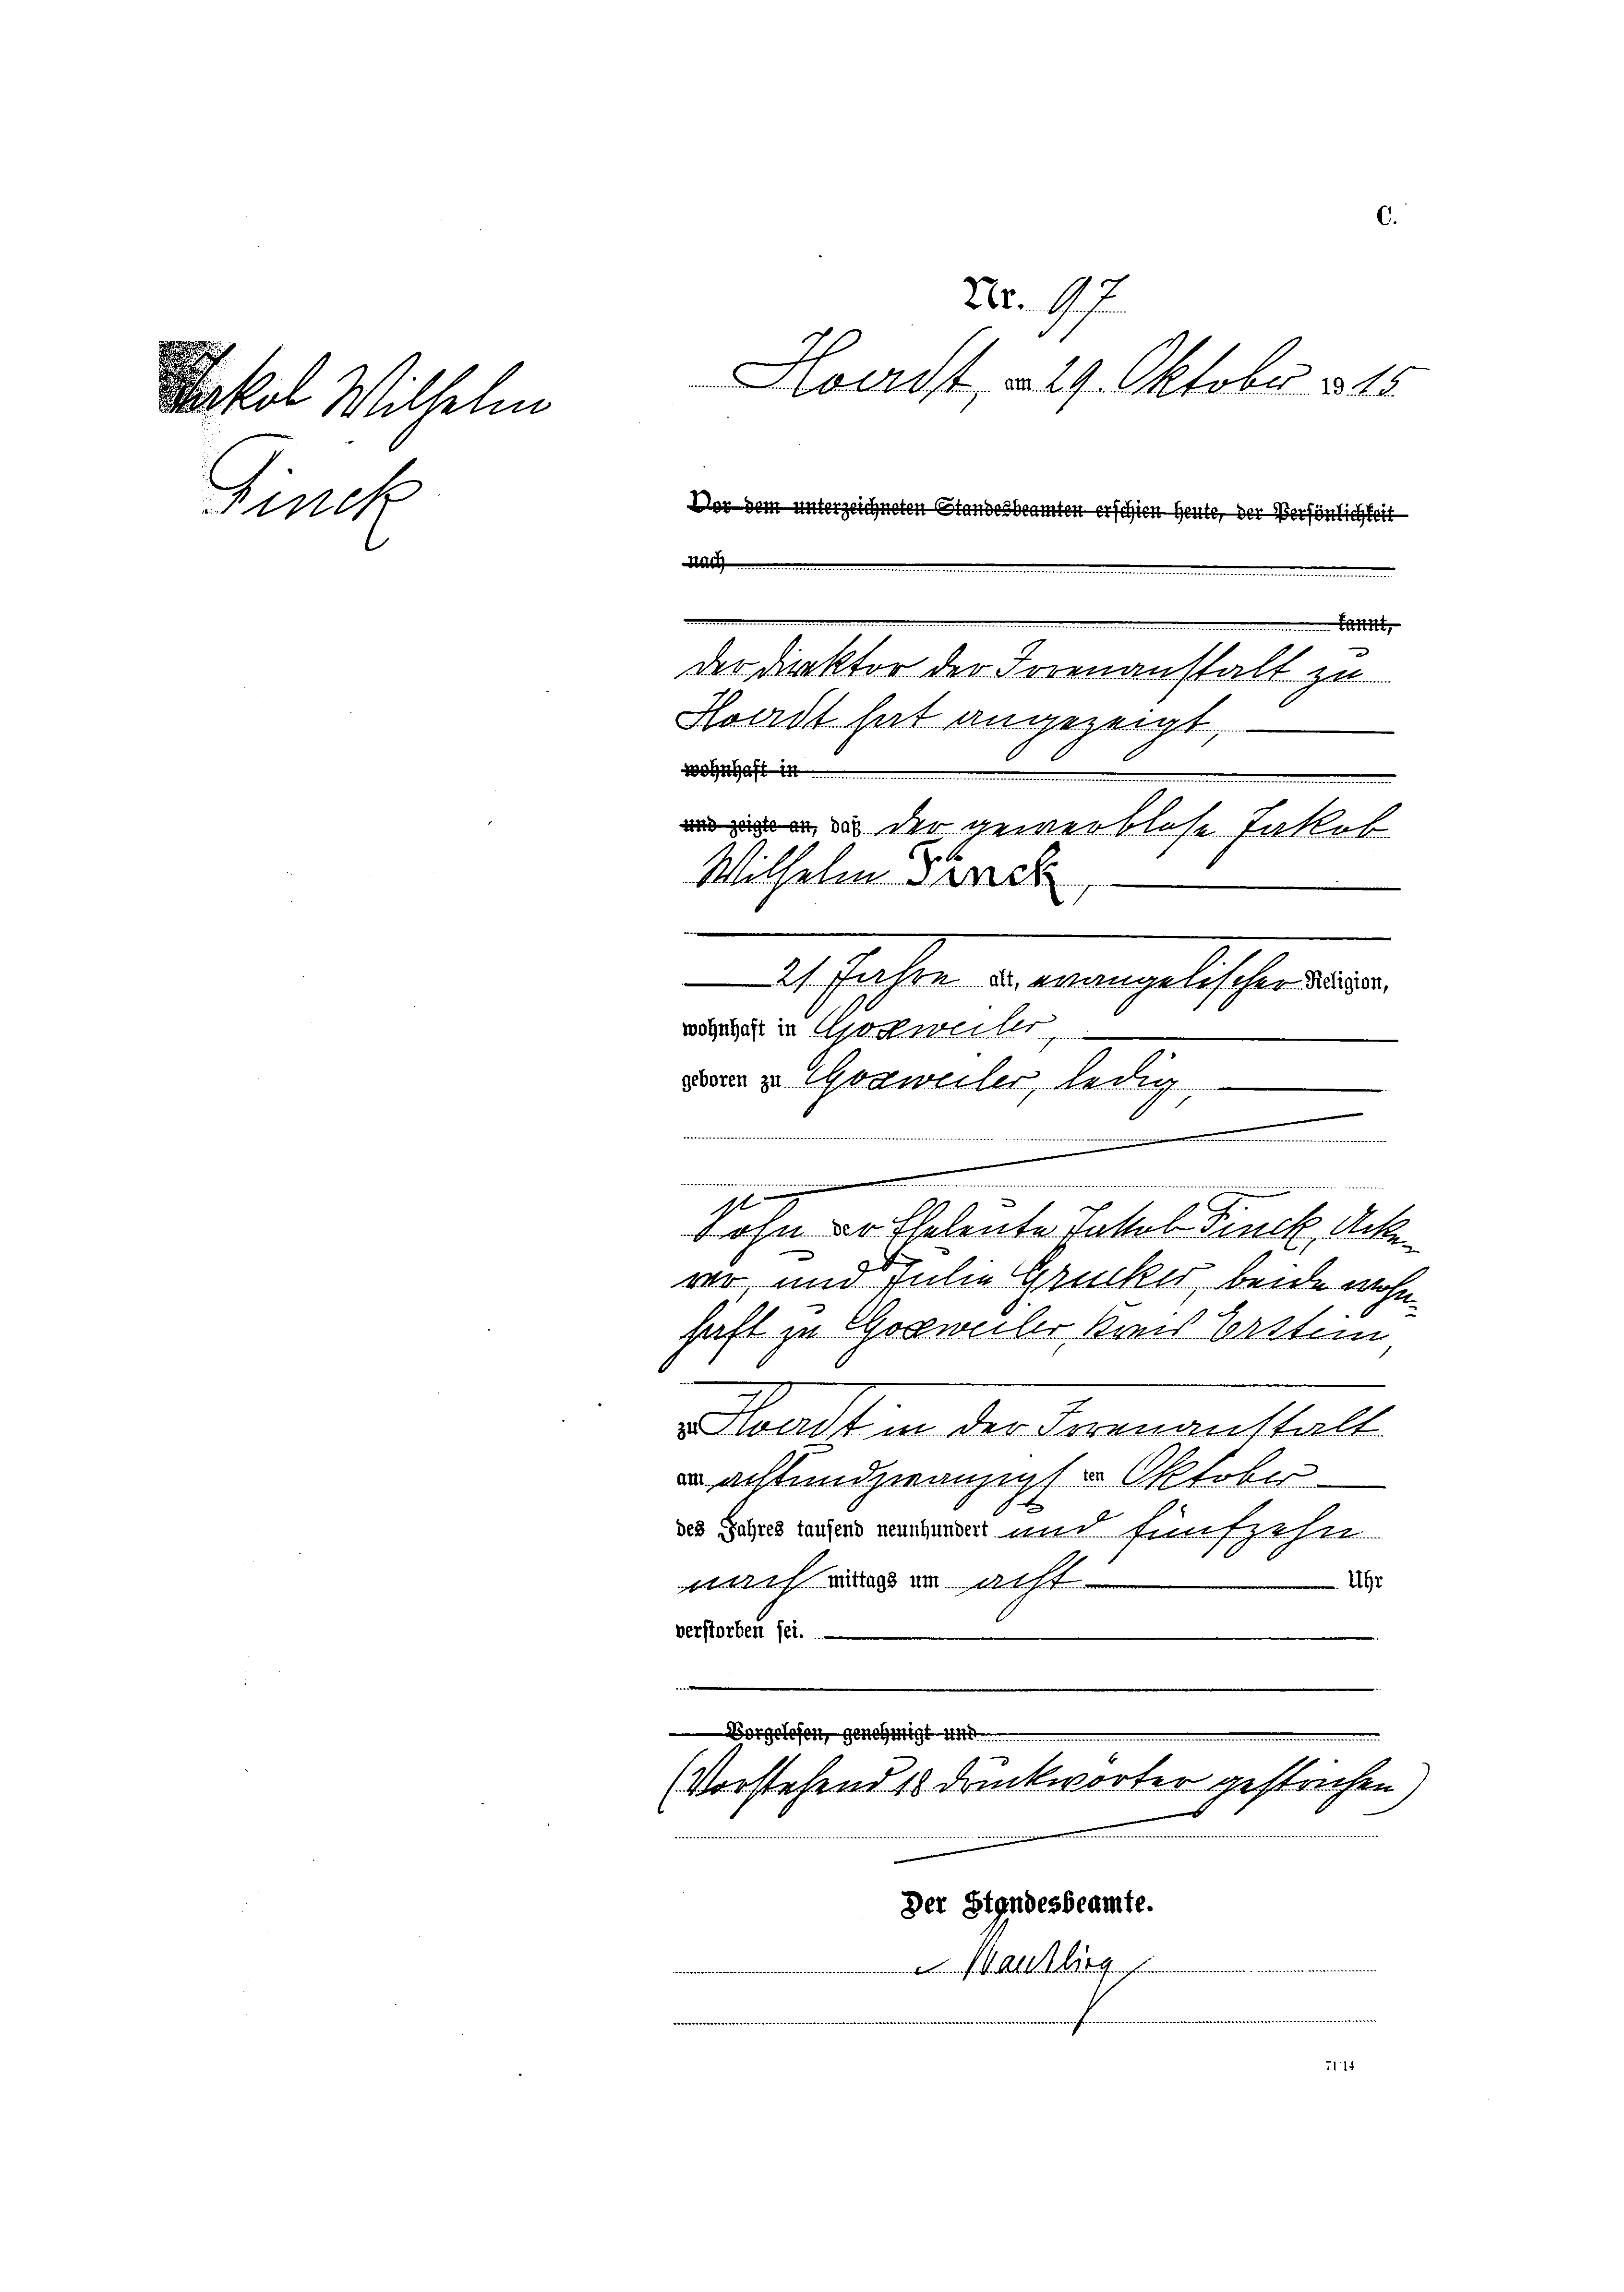 C.
Nr. 97
Jakob Wilhelm
Finck
Hoerdt, am 29. Oktober 1915
Vor dem unterzeichneten Standesbeamten erschien heute, der Persönlichkeit
nach
kannt,
der Direktor der Irrenanstalt zu
Hoerdt hat angezeigt,
wohnhaft in
und zeigte an, daß der gewerblose Jakob
Wilhelm Finck,
21 Jahre alt, evangelischer Religion,
wohnhaft in Goxweiler,
geboren zu Goxweiler, ledig,
Sohn der Eheleute Jakob Finck, Acke-
rer, und Julie Grucker, beide wohn-
haft zu Goxweiler, Kreis Erstein,
zu Hoerdt in der Irrenanstalt
am achtundzwanzigsten Oktober
des Jahres tausend neunhundert und fünfzehn
nachmittags um acht Uhr
verstorben sei.
Vorgelesen, genehmigt und
(Vorstehend 18 Druckwörter gestrichen)
Der Standesbeamte.
71 14